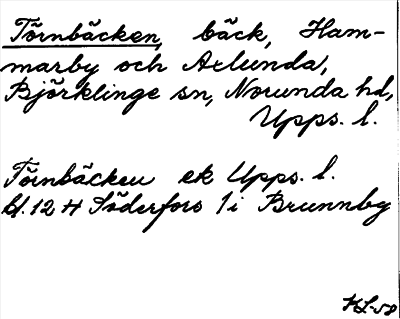 Törnbäcken, bäck, Ham-
marby och Axlunda,
Björklinge sn, Norunda hd,
Upps. l.
Törnbäcken ek Upps. l.
bl. 12 H Söderfors 1 i Brunnby
HL-58